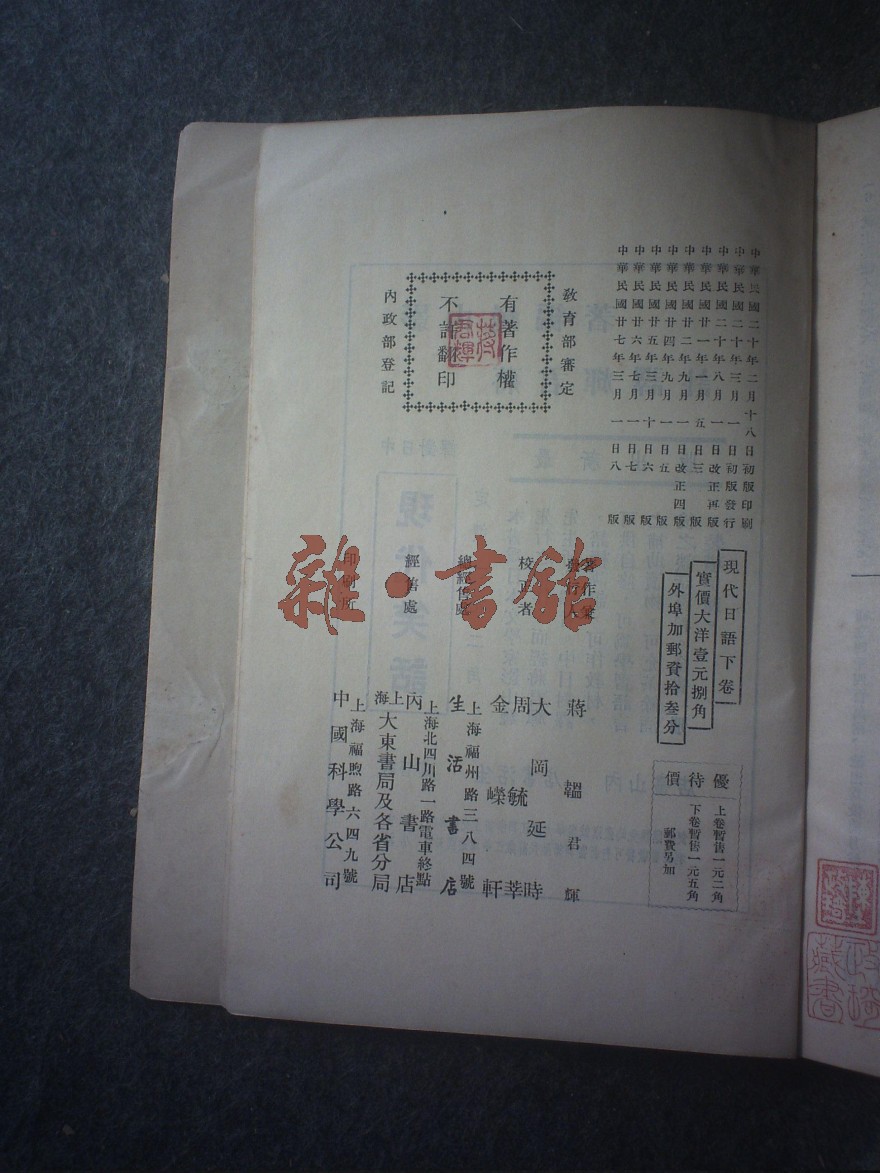 中華民國二十年二月十八日初版印刷
中華民國二十年三月一日初版發行
中華民國二十年八月一日改正再版
中華民國廿一年一月五日三版
中華民國廿二年九月一日改正四版
中華民國廿四年九月一日五版
中華民國廿五年三月十日六版
中華民國廿六年七月一日七版
中華民國廿七年三月一日八版
教育部審定
有著作權
不許翻印
內政部登記
現代日語下卷
實價大洋壹元捌角
外埠加郵費拾叁分
優待價
上卷暫售一元二角
下卷暫售一元五角
郵費另加
著作兼
發行人
蔣君輝
韞
校正者
大岡延時
周毓莘
金嶸軒
總經售處
上海福州路三八四號
生活書店
經售處
上海北四川路一路電車終點
內山書店
上海
大東書局及各省分局
印刷所
上海福煦路六四九號
中國科學公司
現代笑話
雜·書館
蔣君輝
藏書